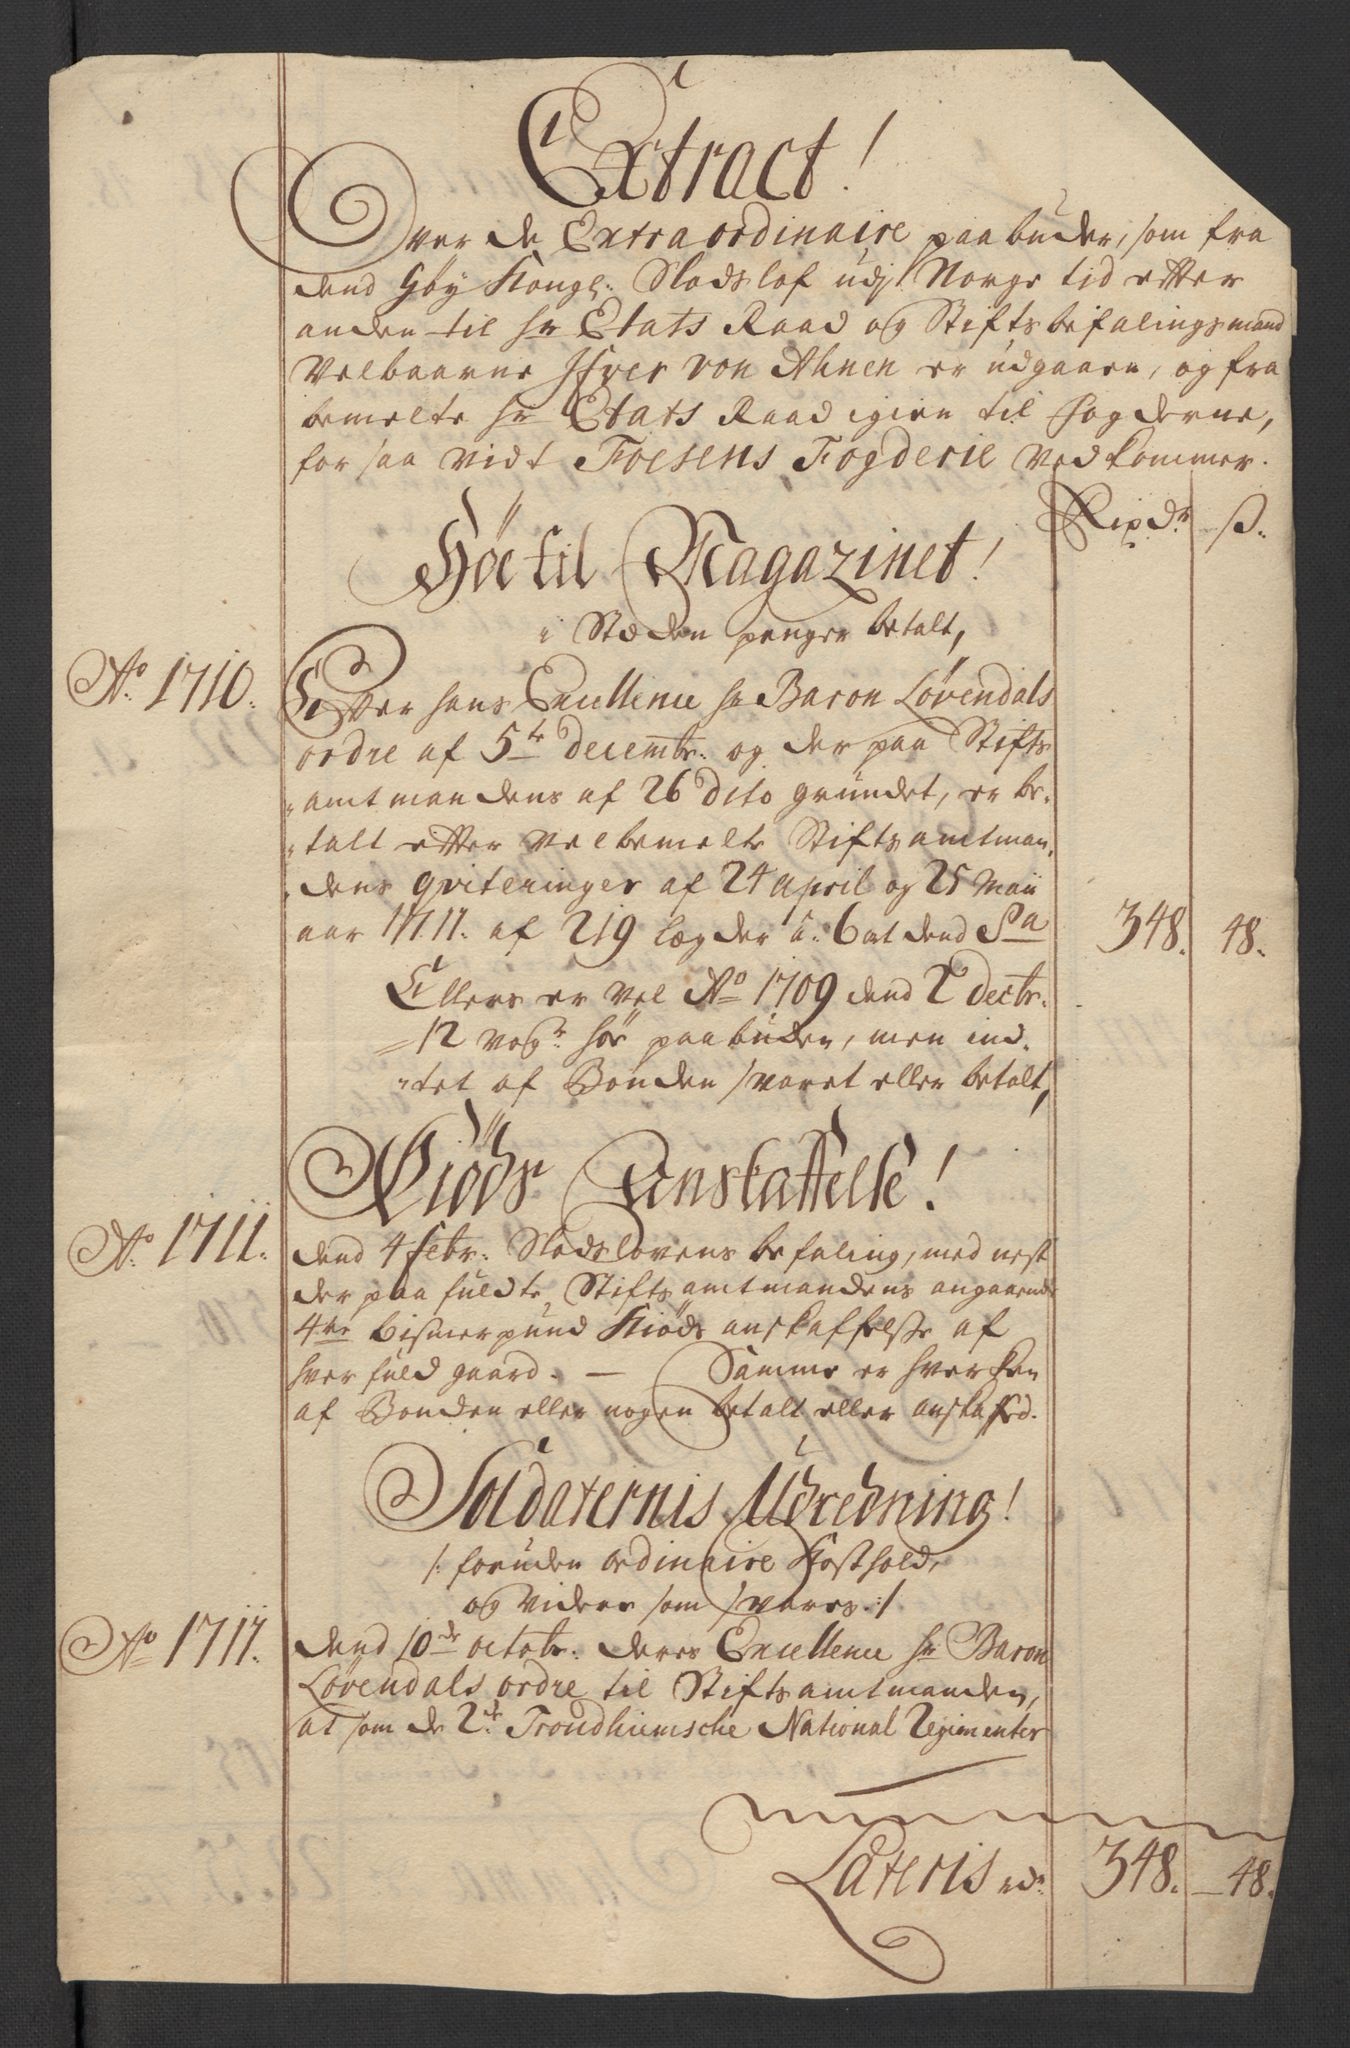 Extract!
Over de Extraordinaire paabuder, som fra
dend Høy Kongl: Slodslof udj Norge tid effter
anden til hr Etats Raad og Stiftsbefalingsmand
Velbaarne Ifver von Ahnen er udgaaen, og fra
bemelte hr Etats Raad igien til fogderne,
for saa vidt Foesens Fogderie vedkommer.
Rixdr ß.
Höe til Magazinet!
i Stæden penger betalt,
Ao 1710.
Effter hans Excellence hr Baron Løvendals
ordre af 5te decembr: og der paa Stifts
amtmandens af 26 dito grundet, er be-
talt effter velbemelte Stiftsamtman,
dens qviteringer af 24 april og 25 Maii
aar 1711. af 219 lægder â: 6 ort dend Sa 348. 48.
Ellers er vel Ao 1709 dend 2 Decbr.
12 vogr: höe paabuden, men ind-
tet af Bonden svaret eller betalt,
Kiöds Anskaffelse!
Ao 1711.
dend 4 febr: Slodslovens befaling, med nest
der paa fuldte Stiftsamtmandens angaaende
4re bismerpund Kiöds anskaffelse af
hver fuld gaard. — Samme er hverken
af Bonden eller nogen betalt eller anskaffed.
Soldaternis Udredning!
/: foruden ordinaire Kosthold,
og videre som svares :/
Ao 1711.
dend 10de octobr: deres Excellence hr Baron
Løvendals ordre til Stiftsamtmanden,
at som de 2de Trondhiemsche National Regimenter
Lateris rdr 348. 48.